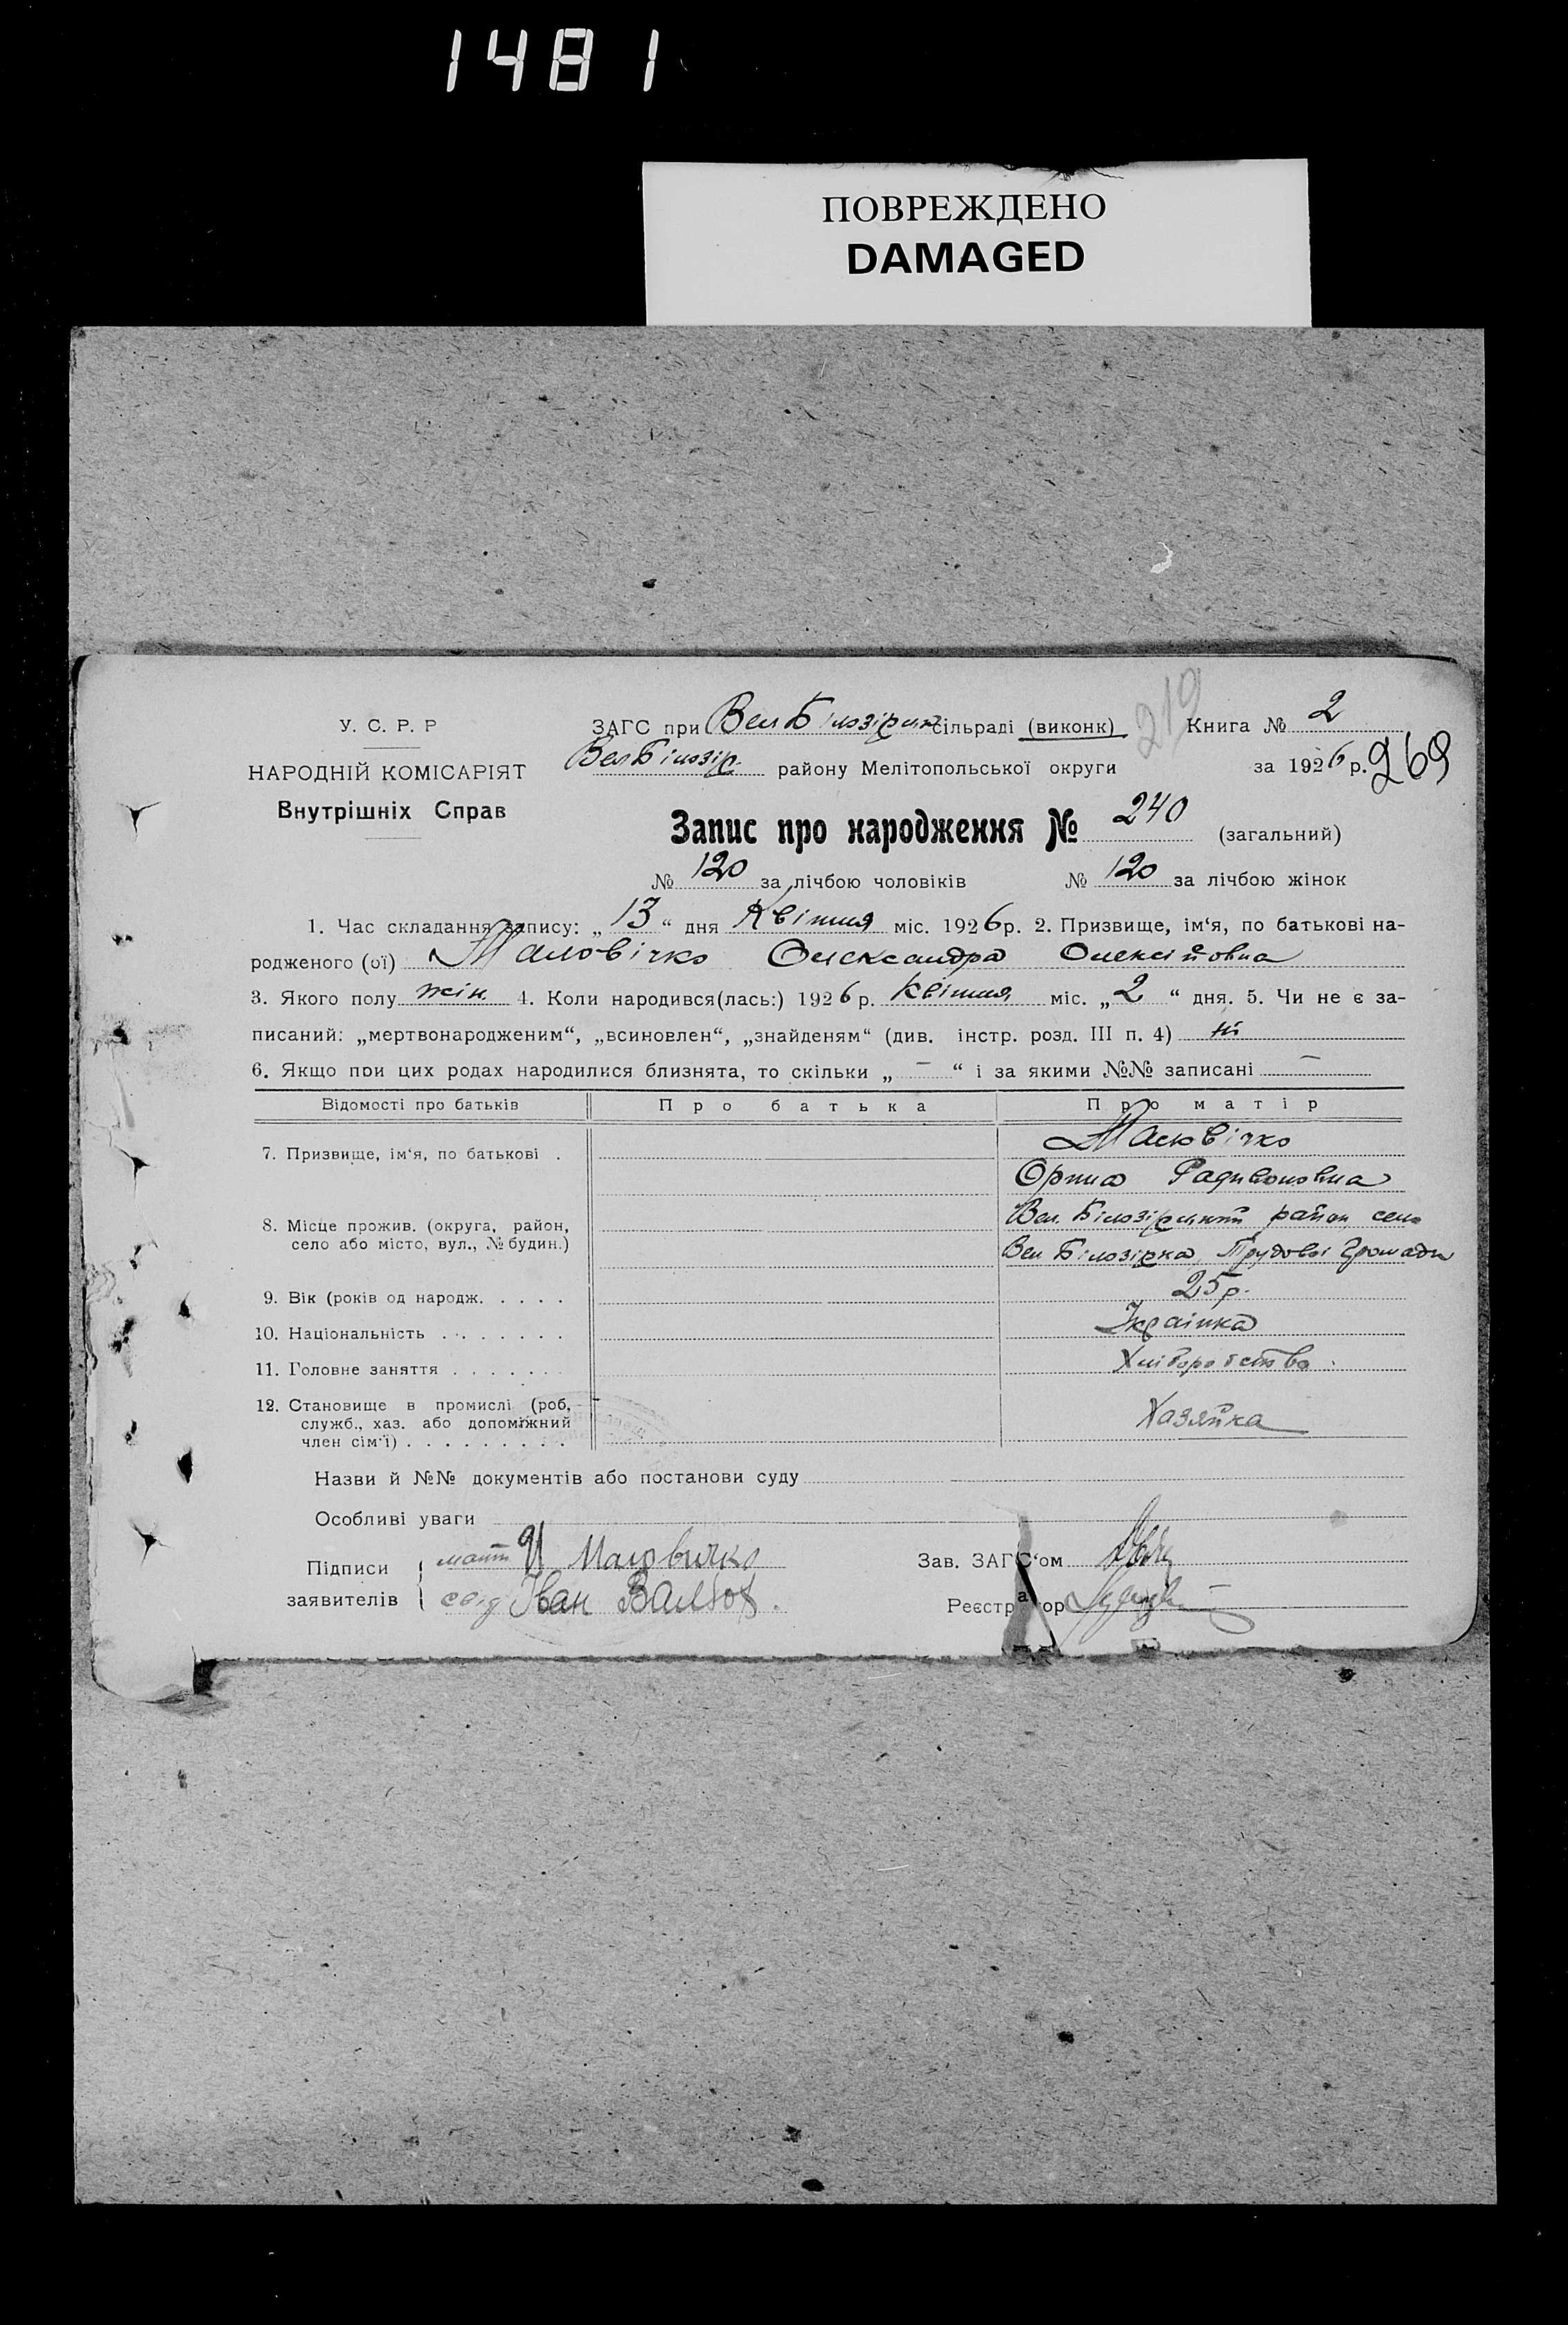 1481
ПОВРЕЖДЕНО
DAMAGED
219
У. С. Р. Р
НАРОДНІЙ КОМІСАРІЯТ
Внутрішніх Справ
ЗАГС при Вел Білозірск сільраді (виконк) Книга № 2
Вел Білозір. району Мелітопольської округи за 1926 р. 269
Запис про народження № 240 (загальний)
№ 120 за лічбою чоловіків № 120 за лічбою жінок
1. Час складання запису: „13“ дня Квітня міс. 1926 р. 2. Призвище, ім‘я, по батькові на-
родженого (ої) Маловічко Олександра Олексіївна
3. Якого полу жін. 4. Коли народився(лась:) 1926 р. Квітня міс. „2“ дня. 5. Чи не є за-
писаний: „мертвонародженим“, „всиновлен“, „знайденям“ (див. інстр. розд. III п. 4) ні
6. Якщо при цих родах народилися близнята, то скільки „—“ і за якими №№ записані —
Відомості про батьків Про батька Про матір
7. Призвище, ім‘я, по батькові . Маловічко
Орина Радивоновна
8. Місце прожив. (округа, район, Вел. Білозірський район село
село або місто, вул., № будин.) Вел Білозірка, Трудової Громади
9. Вік (років од народж. . . . . . 25 р.
10. Національність . . . . . . . Українка
11. Головне заняття . . . . . . . Хліборобство.
12. Становище в промислі (роб, Хазяйка
служб., хаз. або допоміжний
член сім‘ї) . . . . . . . . .
Назви й №№ документів або постанови суду
Особливі уваги
Підписи мати Маловичко Зав. ЗАГС‘ом
заявителів свід Іван Реєстратор